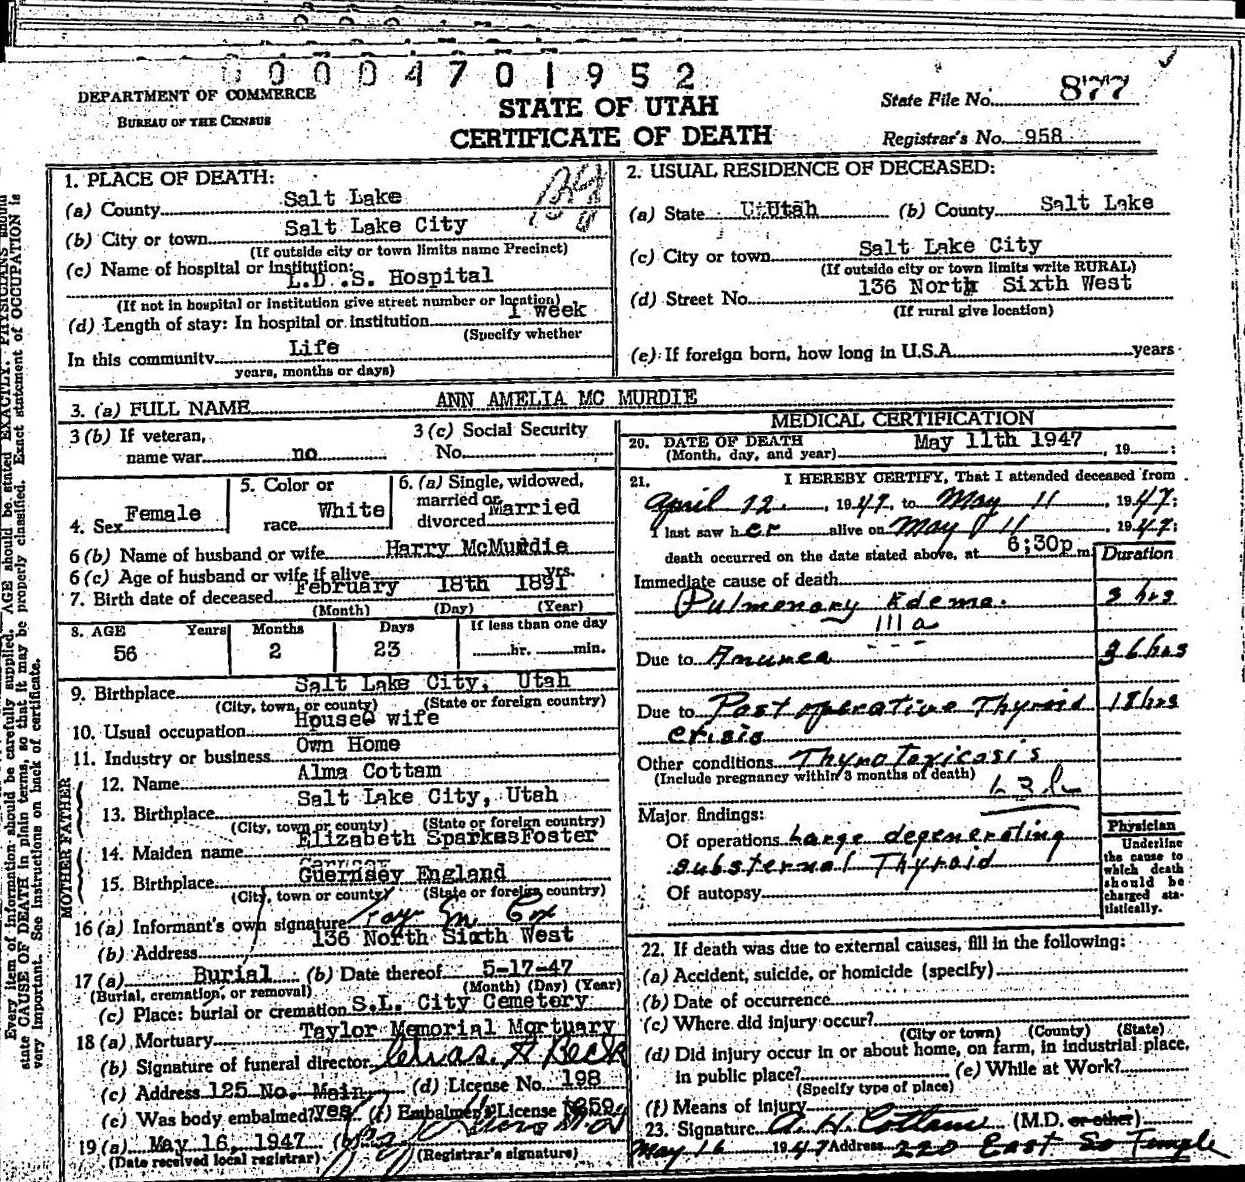 0 0 0 0 4 7 0 1 9 5 2
DEPARTMENT OF COMMERCE
BUREAU OF THE CENSUS
STATE OF UTAH
CERTIFICATE OF DEATH
State File No. 877
Registrar's No. 958
1. PLACE OF DEATH:
(a) County Salt Lake
(b) City or town Salt Lake City
(If outside city or town limits name Precinct)
(c) Name of hospital or institution:
L.D .S. Hospital
(If not in hospital or institution give street number or location)
(d) Length of stay: In hospital or institution 1 week
(Specify whether
In this community Life
years, months or days)
2. USUAL RESIDENCE OF DECEASED:
(a) State Utah (b) County Salt Lake
(c) City or town Salt Lake City
(If outside city or town limits write RURAL)
(d) Street No. 136 North Sixth West
(If rural give location)
(e) If foreign born, how long in U.S.A. years
3. (a) FULL NAME ANN AMELIA MC MURDIE
3 (b) If veteran,
name war no
3 (c) Social Security
No.
4. Sex Female
5. Color or
race White
6. (a) Single, widowed,
married or
divorced Married
6 (b) Name of husband or wife Harry McMurdie
6 (c) Age of husband or wife if alive yrs.
7. Birth date of deceased February 18th 1891
(Month) (Day) (Year)
8. AGE Years Months Days If less than one day
56 2 23 hr. min.
9. Birthplace Salt Lake City, Utah
(City, town, or county) (State or foreign country)
10. Usual occupation House wife
11. Industry or business Own Home
FATHER
12. Name Alma Cottam
13. Birthplace Salt Lake City, Utah
(City, town or county) (State or foreign country)
MOTHER
14. Maiden name Elizabeth Sparkes Foster
15. Birthplace Guernsey England
(City, town or county) (State or foreign country)
16 (a) Informant's own signature M. Cox
(b) Address 136 North Sixth West
17 (a) Burial (b) Date thereof 5-17-47
(Burial, cremation, or removal) (Month) (Day) (Year)
(c) Place: burial or cremation S.L. City Cemetery
18 (a) Mortuary Taylor Memorial Mortuary
(b) Signature of funeral director Chas. A Beck
(c) Address 125 No. Main (d) License No. 198
(e) Was body embalmed? Yes (f) Embalmer's License 359
19 (a) May 16, 1947 (b)
(Date received local registrar) (Registrar's signature)
MEDICAL CERTIFICATION
20. DATE OF DEATH May 11th 1947, 19 :
(Month, day, and year)
21. I HEREBY CERTIFY, That I attended deceased from
April 12, 1947, to May 11, 1947;
I last saw her alive on May 11, 1947;
death occurred on the date stated above, at 6;30p m.
Duration
Immediate cause of death
Pulmonary Edema. 3 hrs
111a
Due to Anurea 36 hrs
Due to Post operative Thyroid 18 hrs
crisis
Other conditions Thyrotoxicosis
(Include pregnancy within 3 months of death)
63b
Major findings:
Of operations Large degenerating
substernal Thyroid
Of autopsy
Physician
Underline
the cause to
which death
should be
charged sta-
tistically.
22. If death was due to external causes, fill in the following:
(a) Accident, suicide, or homicide (specify)
(b) Date of occurrence
(c) Where did injury occur?
(City or town) (County) (State)
(d) Did injury occur in or about home, on farm, in industrial place,
in public place? (e) While at Work?
(Specify type of place)
(f) Means of injury
23. Signature A. H. Cottam (M.D. or other)
May 16 1947 Address 220 East So Temple
Every item of information should be carefully supplied. AGE should be stated EXACTLY. PHYSICIANS should
state CAUSE OF DEATH in plain terms, so that it may be properly classified. Exact statement of OCCUPATION is
very important. See instructions on back of certificate.